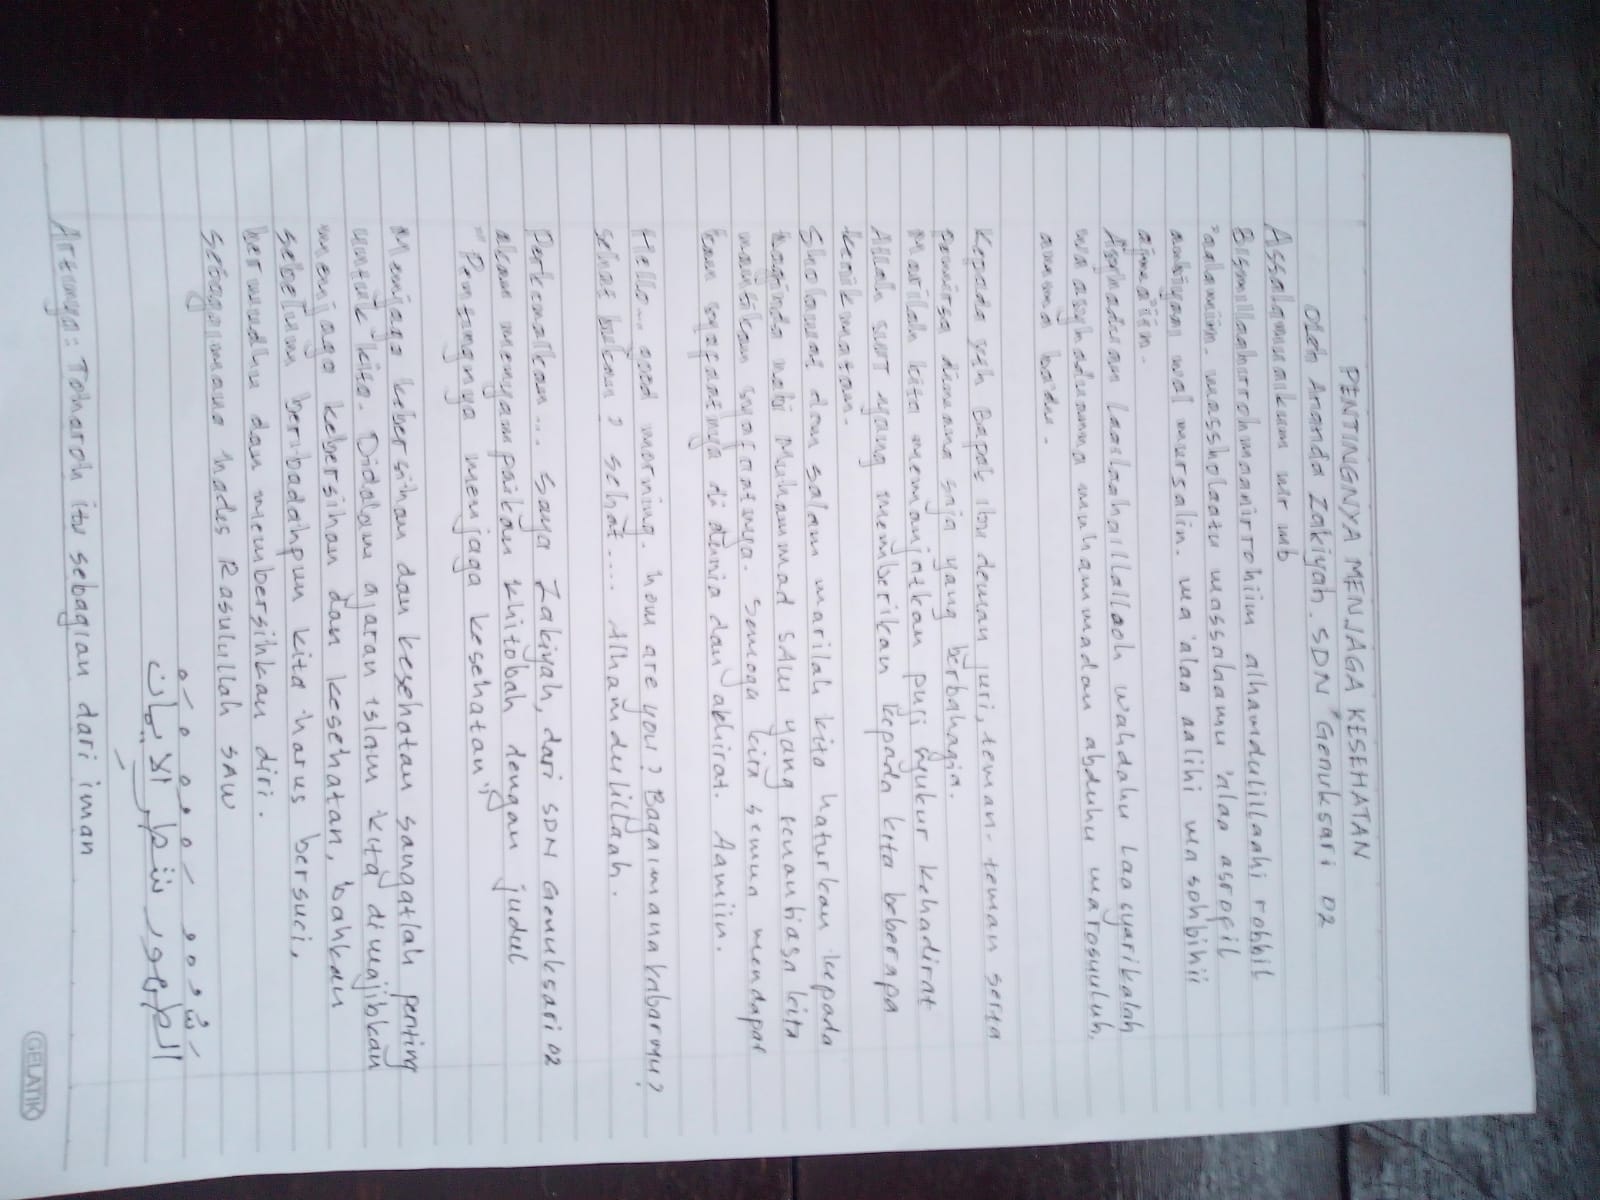 PENTINGNYA MENJAGA KESEHATAN
Oleh Ananda Zakiyah. SDN Genuksari 02
Assalamualaikum wr wb
Bismillaahirrohmaanirrohiim alhamdulillaahi robbil
'aalamiin. wassholaatu wassalaamu 'alaa asrofil
ambiyaai wal mursalin. wa 'alaa aalihi wa sohbihii
ajma'iin.
Asyhaduan Laailaahaillallaoh wahdahu Laa syarikalah
wa asyhaduanna muhammadan abduhu warosuuluh,
ammaa ba'du.
Kepada yth Bapak ibu dewan juri, teman-teman serta
pemirsa dimana saja yang berbahagia.
Marilah kita memanjatkan puji syukur kehadirat
Allah SWT yang memberikan kepada kita beberapa
kenikmatan.
Sholawat dan salam marilah kita haturkan kepada
baginda nabi Muhammad SAW yang senantiasa kita
nantikan syafaatnya. Semoga kita semua mendapat
kan syafaatnya di dunia dan akhirat. Aamiin.
Hello... good morning. how are you? Bagaimana kabarmu?
sehat bukan? sehat.... Alhamdulillaah.
Perkenalkan... saya Zakiyah, dari SDN Genuksari 02
akan menyampaikan khitobah dengan judul
"Pentingnya menjaga kesehatan"
Menjaga kebersihan dan kesehatan sangatlah penting
untuk kita. Didalam ajaran islam kita diwajibkan
menjaga kebersihan dan kesehatan, bahkan
sebelum beribadahpun kita harus bersuci,
berwudhu dan membersihkan diri.
Sebagaimana hadis Rasulullah SAW
الطهور شطر الايمان
Artinya: Toharoh itu sebagian dari iman
GELATIK